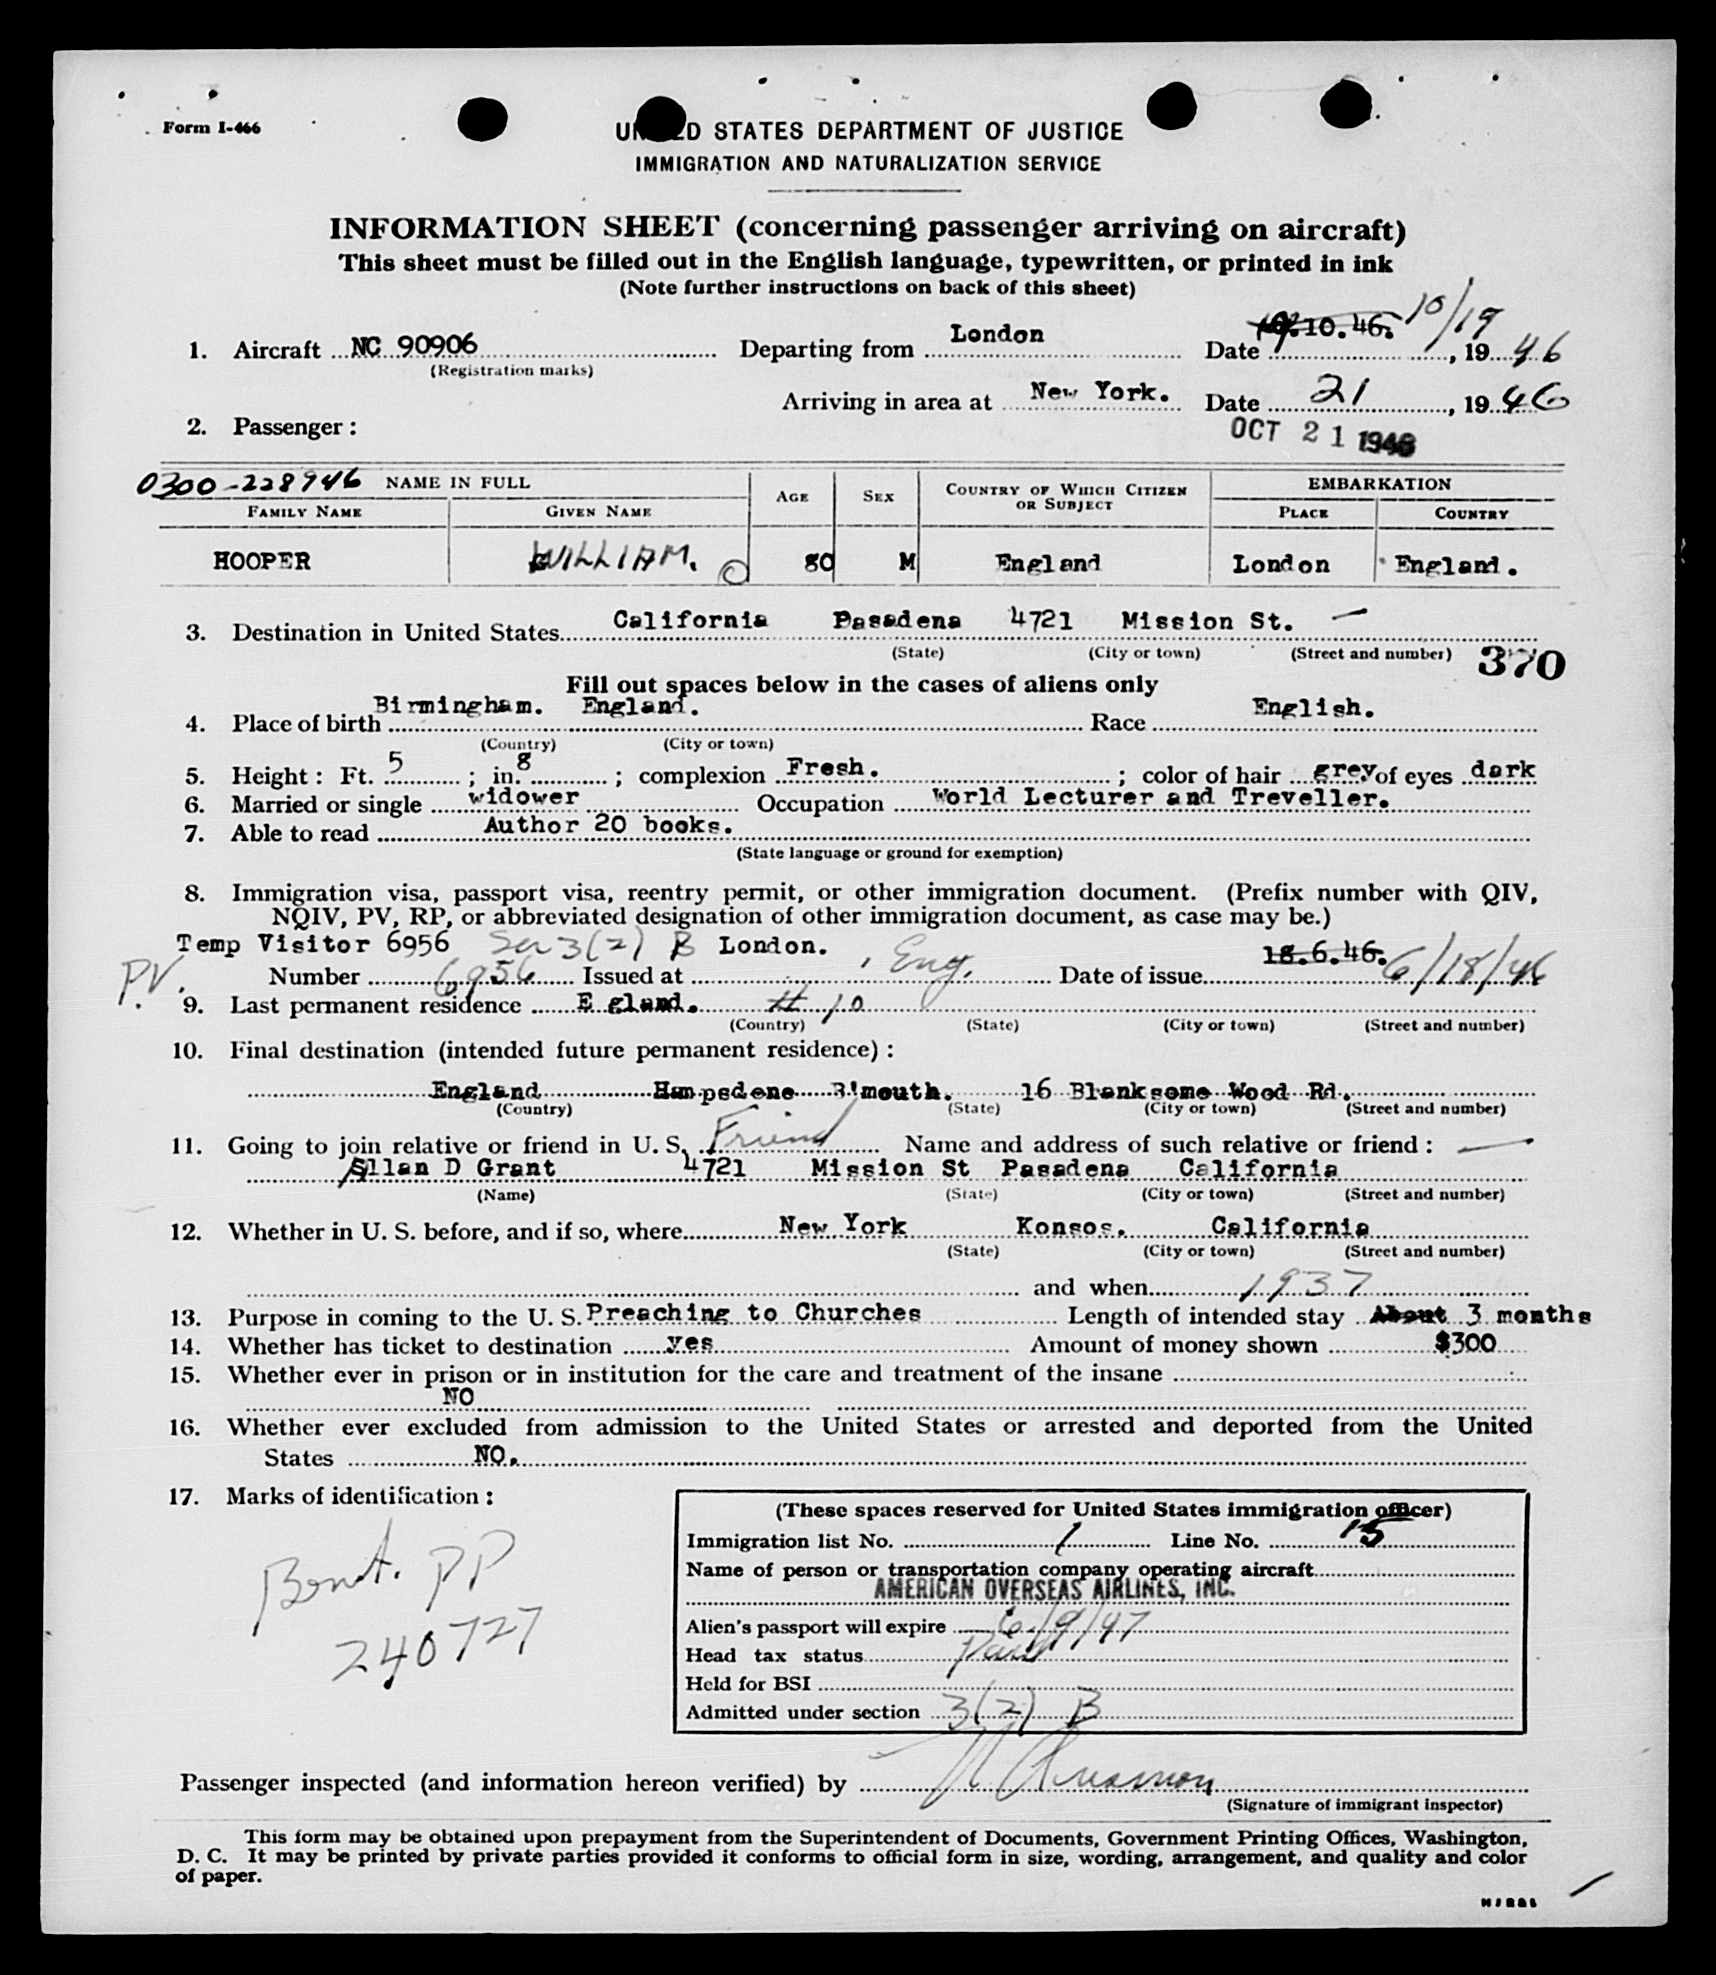 Form I-466
UNITED STATES DEPARTMENT OF JUSTICE
IMMIGRATION AND NATURALIZATION SERVICE
INFORMATION SHEET (concerning passenger arriving on aircraft)
This sheet must be filled out in the English language, typewritten, or printed in ink
(Note further instructions on back of this sheet)
1. Aircraft NC 90906 Departing from London Date 19.10.46. 10/19, 19 46
(Registration marks)
Arriving in area at New York. Date 21, 19 46
2. Passenger: OCT 21 1946
0300-228946 NAME IN FULL AGE SEX COUNTRY OF WHICH CITIZEN OR SUBJECT EMBARKATION
FAMILY NAME GIVEN NAME PLACE COUNTRY
HOOPER WILLIAM. 80 M England London England.
3. Destination in United States California Pasadena 4721 Mission St. —
(State) (City or town) (Street and number) 370
Fill out spaces below in the cases of aliens only
4. Place of birth Birmingham. England. Race English.
(Country) (City or town)
5. Height: Ft. 5; in. 8; complexion Fresh.; color of hair grey of eyes dark
6. Married or single widower Occupation World Lecturer and Treveller.
7. Able to read Author 20 books.
(State language or ground for exemption)
8. Immigration visa, passport visa, reentry permit, or other immigration document. (Prefix number with QIV,
NQIV, PV, RP, or abbreviated designation of other immigration document, as case may be.)
Temp Visitor 6956 3(2) B London. 18.6.46.
PV. Number 6956 Issued at , Eng. Date of issue 6/18/46
9. Last permanent residence E gland. # 10
(Country) (State) (City or town) (Street and number)
10. Final destination (intended future permanent residence):
England Hampsdene B'mouth. 16 Branksome Wood Rd.
(Country) (State) (City or town) (Street and number)
11. Going to join relative or friend in U. S. Friend Name and address of such relative or friend: —
Allan D Grant 4721 Mission St Pasadena California
(Name) (State) (City or town) (Street and number)
12. Whether in U. S. before, and if so, where New York Konsos. California
(State) (City or town) (Street and number)
and when 1937
13. Purpose in coming to the U. S. Preaching to Churches Length of intended stay About 3 months
14. Whether has ticket to destination yes Amount of money shown $300
15. Whether ever in prison or in institution for the care and treatment of the insane
NO
16. Whether ever excluded from admission to the United States or arrested and deported from the United
States NO.
17. Marks of identification:
PP
240727
(These spaces reserved for United States immigration officer)
Immigration list No. 1 Line No. 15
Name of person or transportation company operating aircraft
AMERICAN OVERSEAS AIRLINES, INC.
Alien's passport will expire 6/9/47
Head tax status Paid
Held for BSI
Admitted under section 3(2) B
Passenger inspected (and information hereon verified) by
(Signature of immigrant inspector)
This form may be obtained upon prepayment from the Superintendent of Documents, Government Printing Offices, Washington,
D. C. It may be printed by private parties provided it conforms to official form in size, wording, arrangement, and quality and color
of paper.